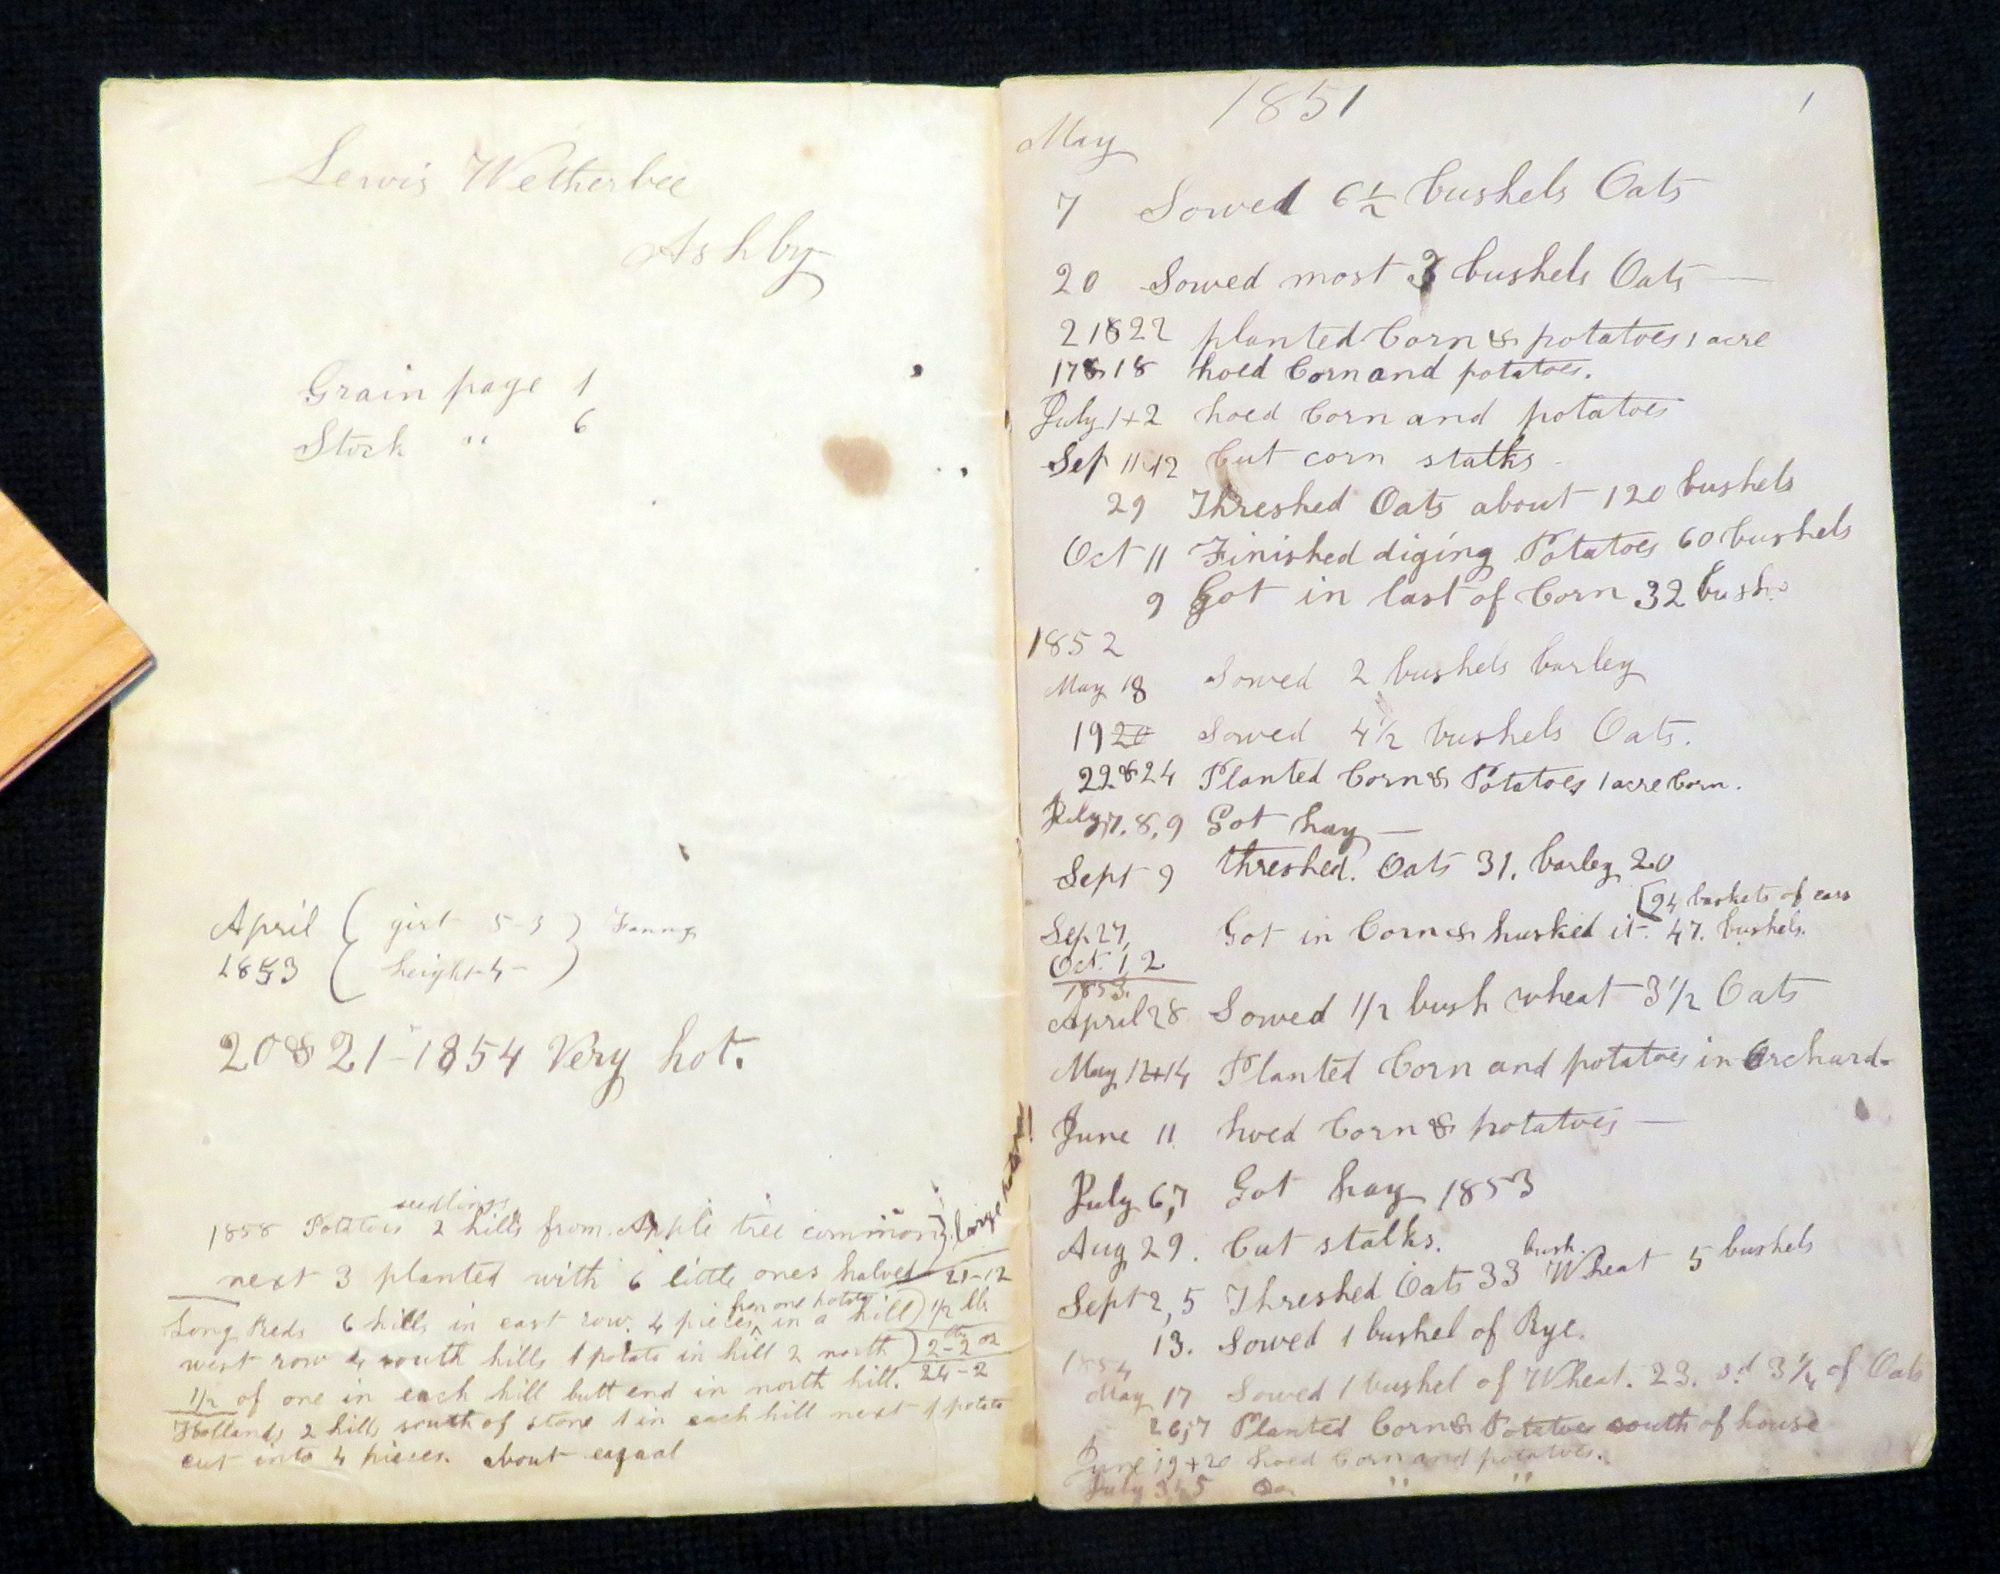 Lewis Wetherbee
Ashby
Grain page 1
Stock " 6
April ( girt 5-3 ) Fanny
1853 ( height 4 - )
20 & 21 - 1854 Very hot.
seedlings
1858 Potatoes 2 hills from Apple tree common } large
next 3 planted with 6 little ones halved 21-12
from one potato
Long Reds 6 hills in east row. 4 pieces ^ in a hill ) 1/2 lbs
west row 4 south hills 1 potato in hill 2 north ) 2-2 oz
1/2 of one in each hill butt end in north hill. 24-2
Hollands 2 hills south of stone 1 in each hill next 1 potato
cut into 4 pieces. about equal
1851 1
May
7 Sowed 6 1/2 bushels Oats
20 Sowed most 3 bushels Oats —
21 & 22 planted Corn & potatoes 1 acre
17 & 18 hoed Corn and potatoes.
July 1+2 hoed Corn and potatoes
Sep 11 12 Cut corn stalks
29 Threshed Oats about 120 bushels
Oct 11 Finished diging Potatoes 60 bushels
9 Got in last of Corn 32 bush.
1852
May 18 Sowed 2 bushels barley
19 20 Sowed 4 1/2 bushels Oats.
22 & 24 Planted Corn & Potatoes 1 acre Corn.
July 7. 8. 9 Got hay —
Sept 9 threshed. Oats 31. barley 20
[94 baskets of ears
Sep 27, Got in Corn & husked it. 47. bushels.
Oct. 1, 2
1853.
April 28 Sowed 1 1/2 bush wheat 3 1/2 Oats
May 12+14 Planted Corn and potatoes in Orchard-
June 11 hoed Corn & potatoes —
July 6,7 Got hay 1853
Aug 29. Cut stalks.
bush.
Sept 2, 5 Threshed Oats 33 Wheat 5 bushels
13. Sowed 1 bushel of Rye.
1854
May 17 Sowed 1 bushel of Wheat. 23. sd 3 1/4 of Oats
26,7 Planted Corn & Potatoes south of house
June 19+20 hoed Corn and potatoes.
July 3 5 Do. " "